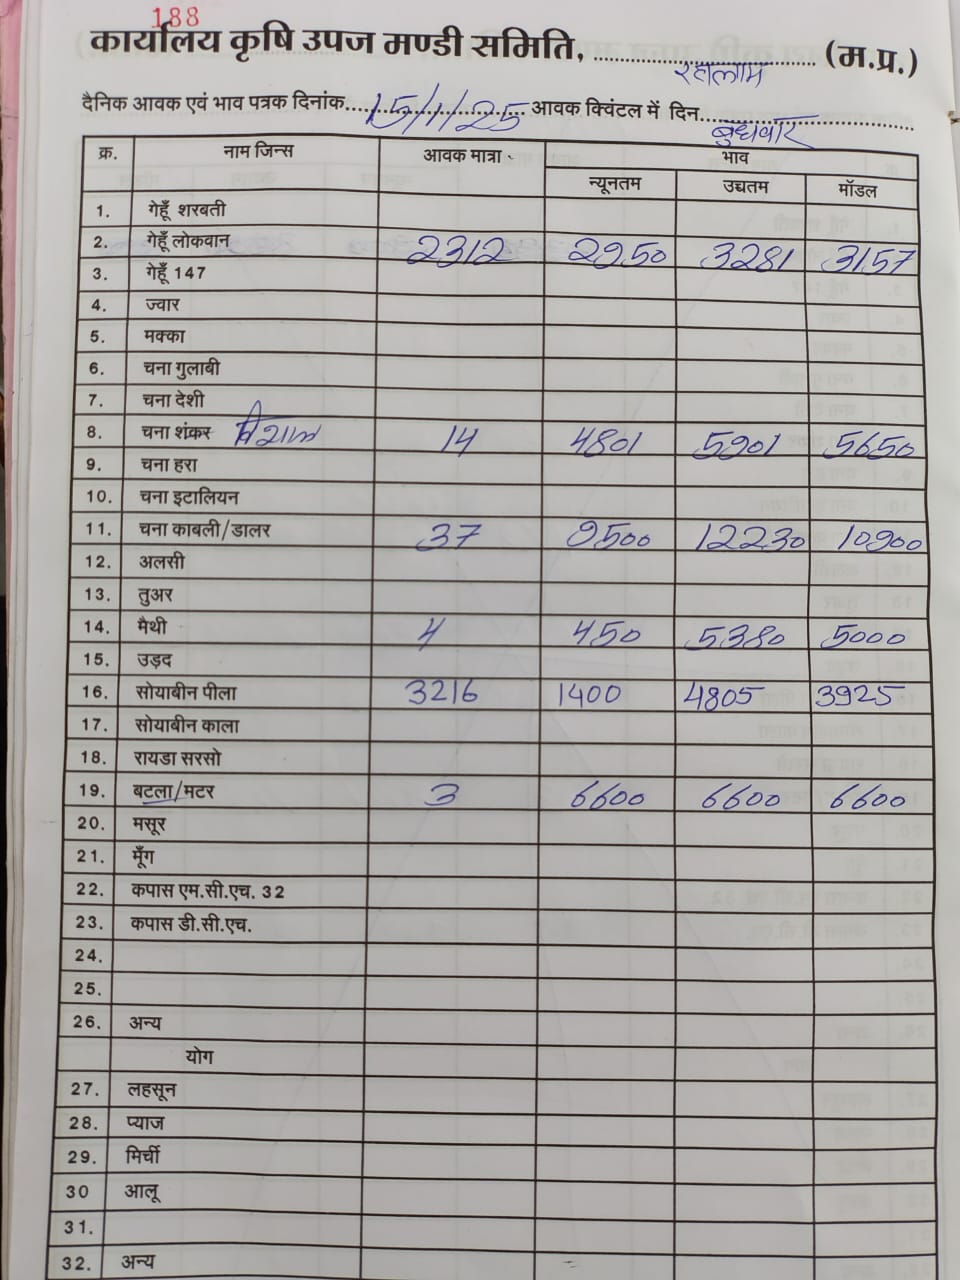 188
कार्यालय कृषि उपज मण्डी समिति, रतलाम (म.प्र.)
दैनिक आवक एवं भाव पत्रक दिनांक 15/1/25 आवक क्विंटल में दिन बुधवार
क्र. नाम जिन्स आवक मात्रा भाव
न्यूनतम उच्चतम मॉडल
1. गेहूँ शरबती
2. गेहूँ लोकवान 2312 2950 3281 3157
3. गेहूँ 147
4. ज्वार
5. मक्का
6. चना गुलाबी
7. चना देशी
8. चना शंकर विशाल 14 4801 5901 5650
9. चना हरा
10. चना इटालियन
11. चना काबली/डालर 37 9500 12230 10900
12. अलसी
13. तुअर
14. मैथी 4 450 5380 5000
15. उड़द
16. सोयाबीन पीला 3216 1400 4805 3925
17. सोयाबीन काला
18. रायडा सरसो
19. बटला/मटर 3 6600 6600 6600
20. मसूर
21. मूँग
22. कपास एम.सी.एच. 32
23. कपास डी.सी.एच.
24.
25.
26. अन्य
योग
27. लहसून
28. प्याज
29. मिर्ची
30 आलू
31.
32. अन्य